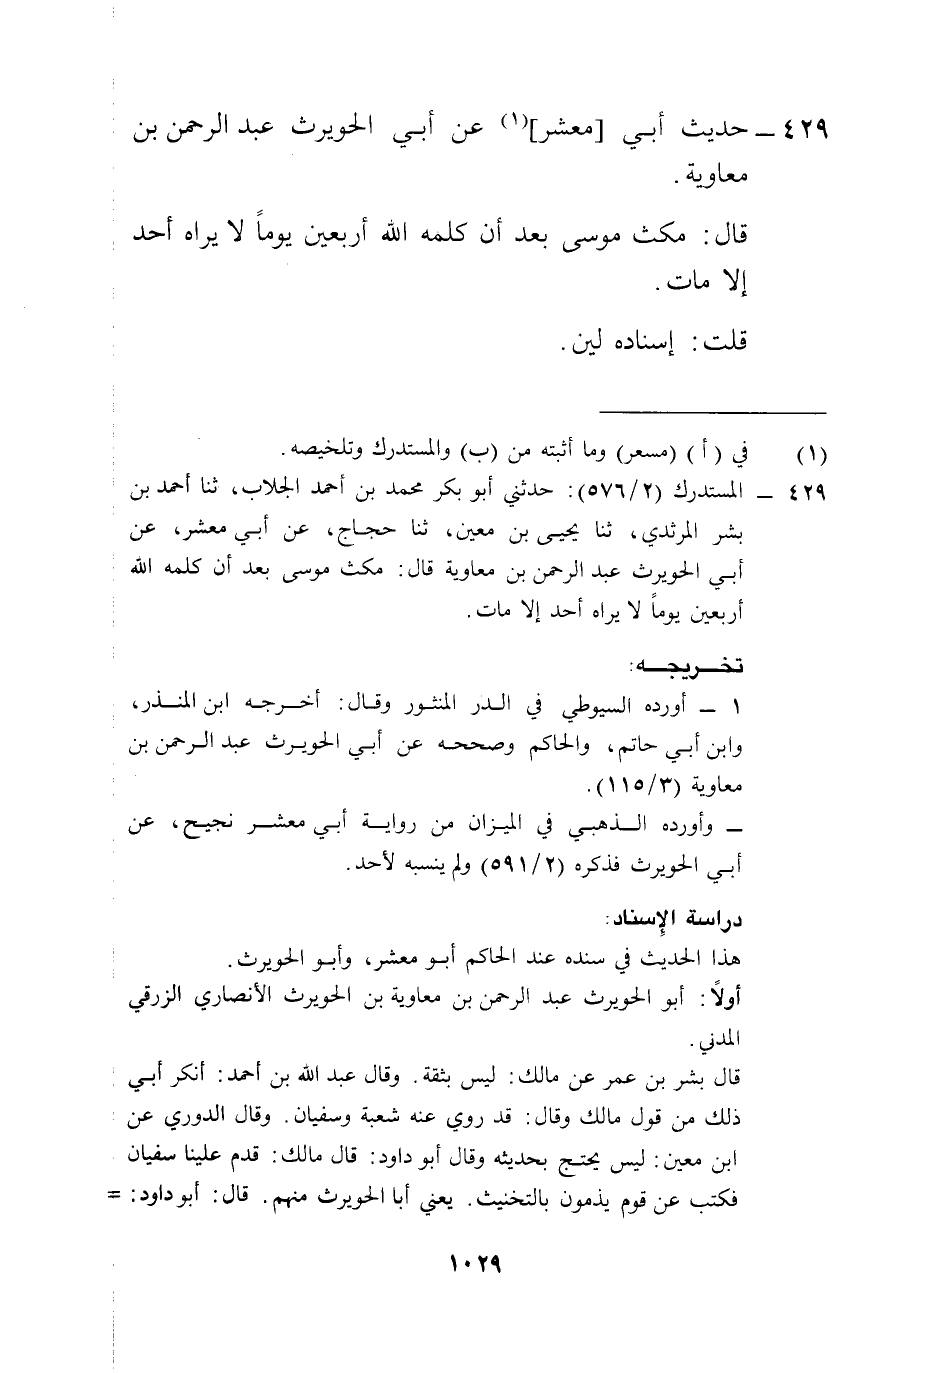 ٤٢٩ ــ حديث أبـي [معشر](١) عن أبـي الحويرث عبد الرحمن بن
معاوية .
قال: مكث موسى بعد أن كلمه الله أربعين يوماً لا يراه أحد
إلا مات .
قلت: إسناده لين .
(١) في ( أ ) (مسعر) وما أثبته من (ب) والمستدرك وتلخيصه.
٤٢٩ ــ المستدرك (٥٧٦/٢): حدثني أبو بكر محمد بن أحمد الجلاب، ثنا أحمد بن
بشر المرثدي، ثنا يحيـى بن معين، ثنا حجاج، عن أبـي معشر، عن
أبـي الحويرث عبد الرحمن بن معاوية قال: مكث موسى بعد أن كلمه الله
أربعين يوماً لا يراه أحد إلا مات.
تخـــريجـــه:
١ ــ أورده السيوطي في الدر المنثور وقال: أخـرجـه ابن المنـذر،
وابن أبـي حاتم، والحاكم وصححه عن أبـي الحويرث عبد الرحمن بن
معاوية (١١٥/٣).
ــ وأورده الذهبـي في الميزان من روايـة أبـي معشـر نجيح، عن
أبـي الحويرث فذكره (٥٩١/٢) ولم ينسبه لأحد.
دراسة الإسناد:
هذا الحديث في سنده عند الحاكم أبـو معشر، وأبـو الحويرث.
أولاً: أبو الحويرث عبد الرحمن بن معاوية بن الحويرث الأنصاري الزرقي
المدني.
قال بشر بن عمر عن مالك: ليس بثقة. وقال عبد الله بن أحمد: أنكر أبـي
ذلك من قول مالك وقال: قد روي عنه شعبة وسفيان. وقال الدوري عن
ابن معين: ليس يحتج بحديثه وقال أبو داود: قال مالك: قدم علينا سفيان
فكتب عن قوم يذمون بالتخنيث. يعني أبا الحويرث منهم. قال: أبو داود: =
١٠٢٩